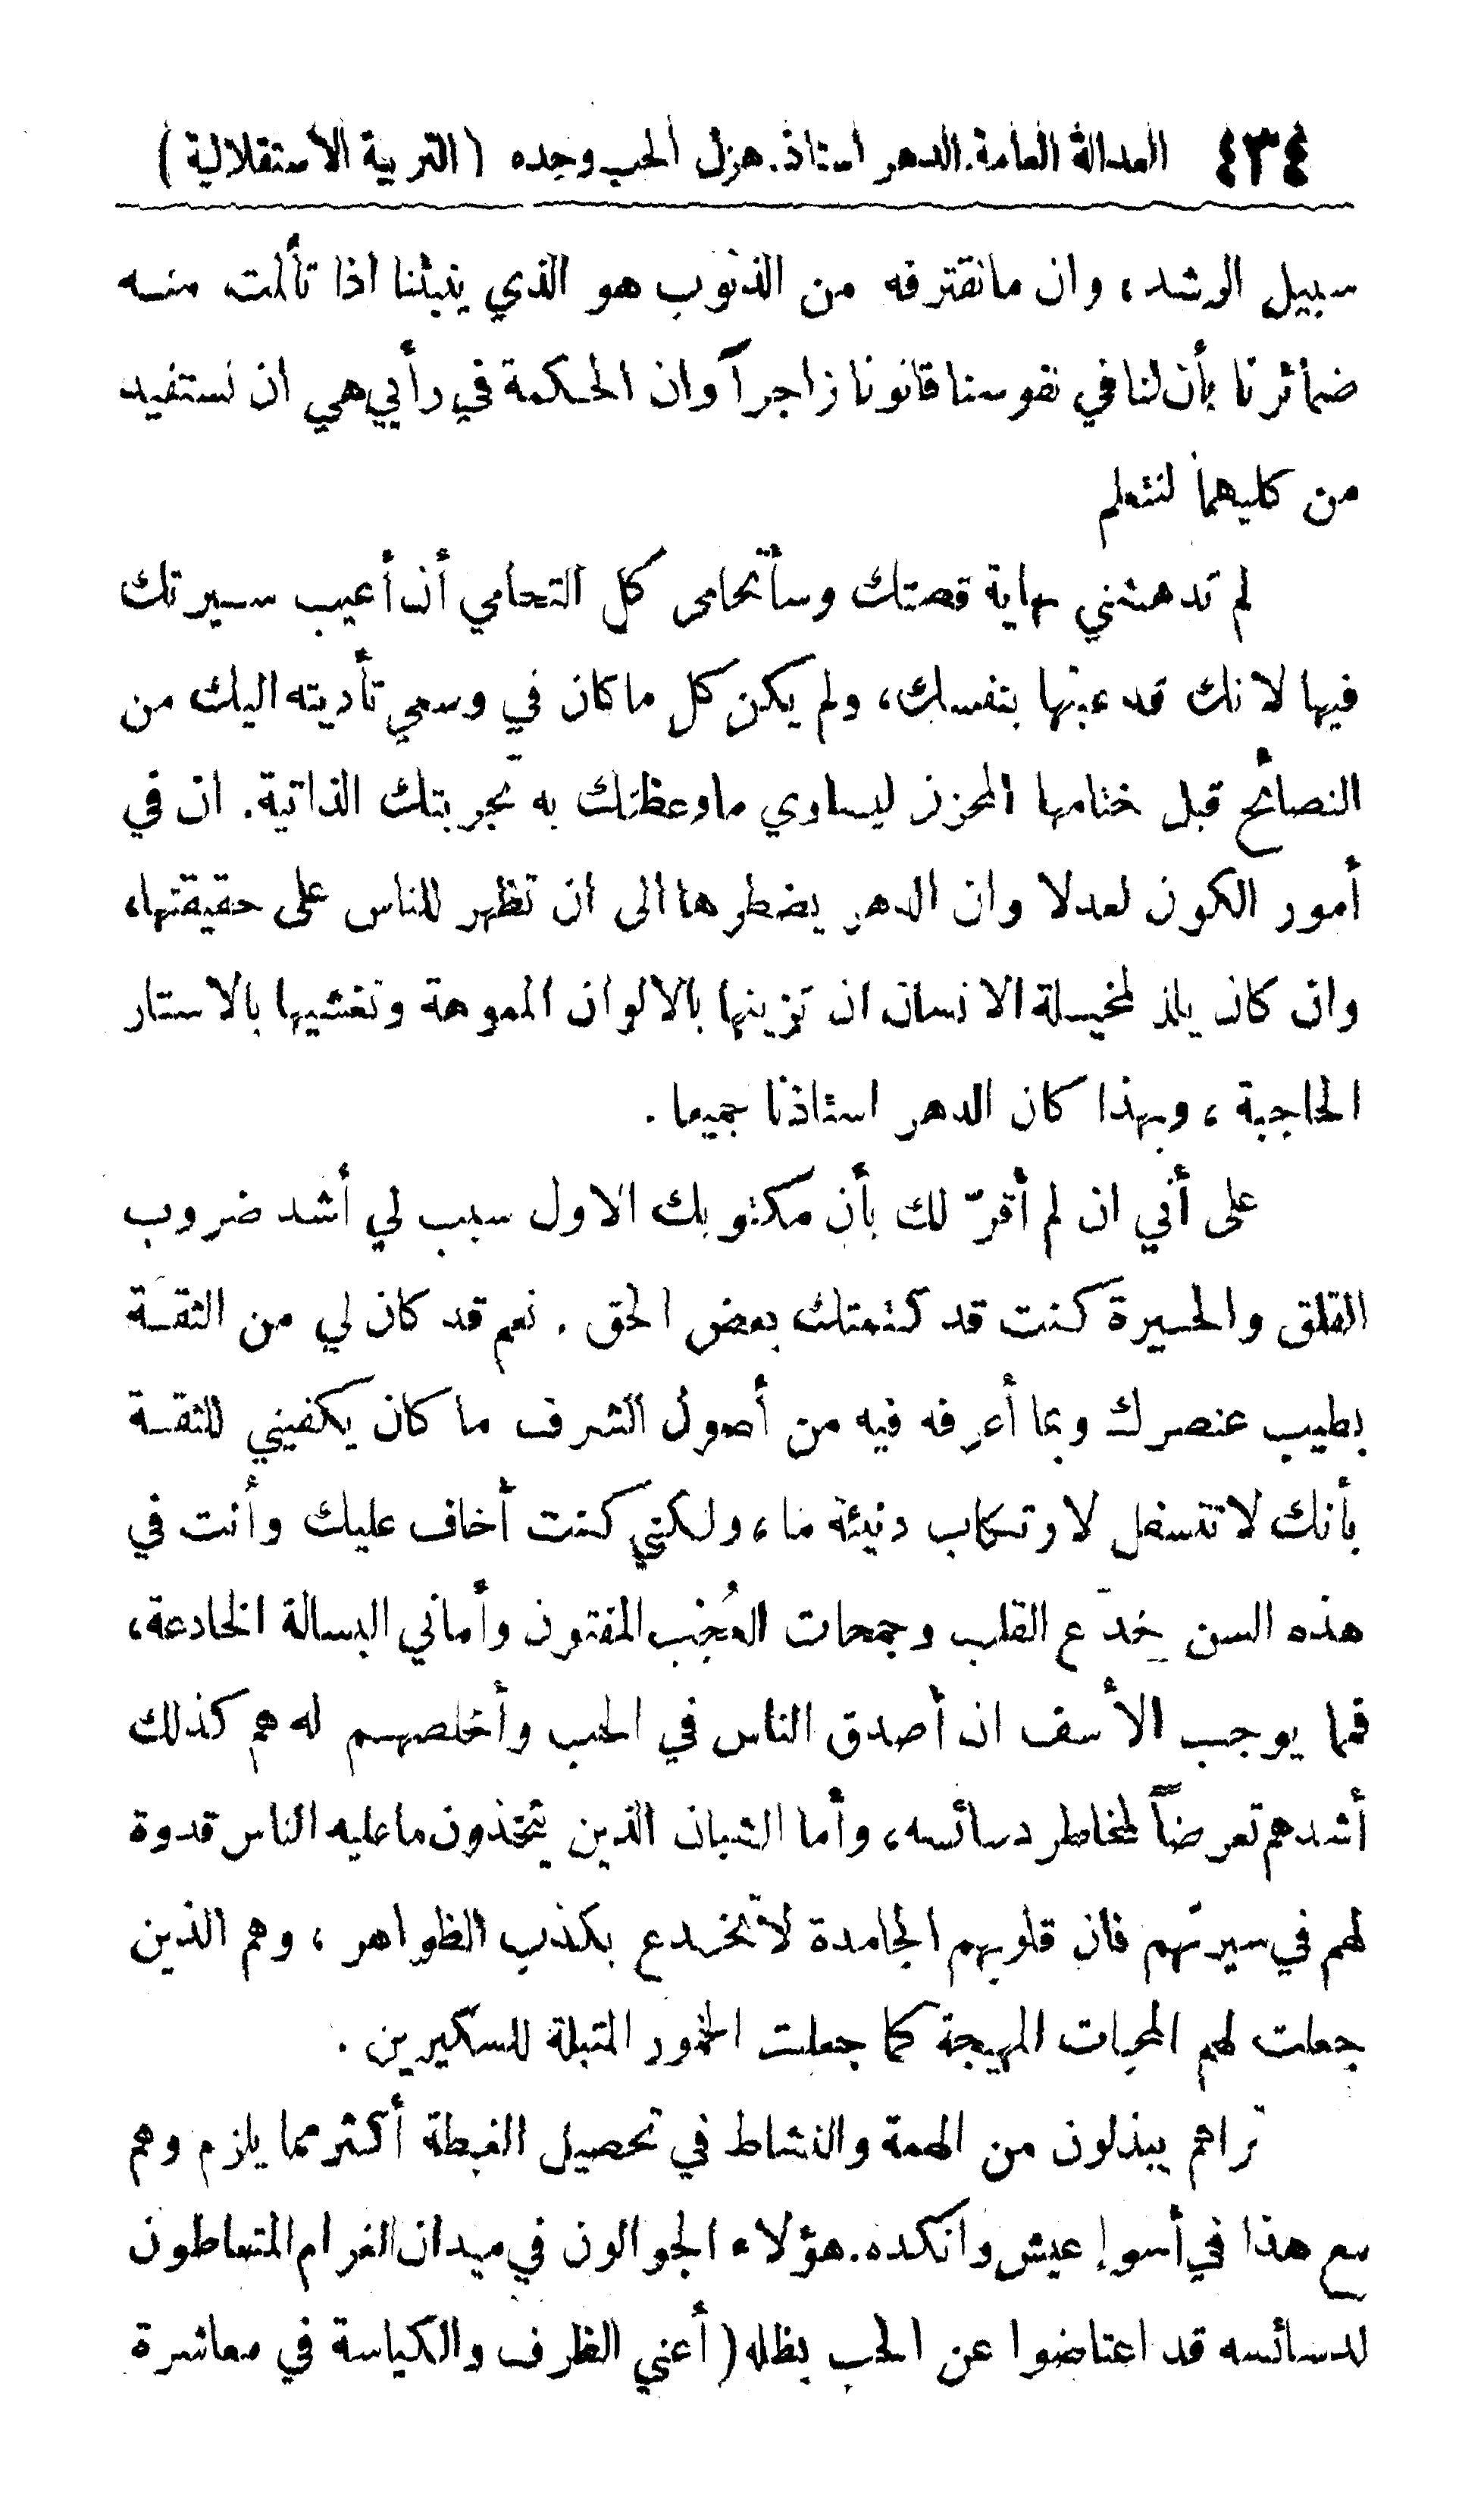 ٤٣٤ العدالة العامة. الدهر استاذ. هزل الحب وجده (التربية الاستقلالية)
سبيل الرشد، وان مانقترفه من الذنوب هو الذي ينبئنا اذا تألمت منه
ضمائرنا بأن لنا في نفوسنا قانونا زاجراً وان الحكمة في رأيي هي ان نستفيد
من كليهما لنتعلم
لم تدهشني نهاية قصتك وسأتحامى كل التحامي أن أعيب سيرتك
فيها لانك قد عبتها بنفسك، ولم يكن كل ما كان في وسعي تأديته اليك من
النصائح قبل ختامها المحزن ليساوي ماوعظتك به تجربتك الذاتية. ان في
أمور الكون لعدلا وان الدهر يضطرها الى ان تظهر للناس على حقيقتها،
وان كان يلذ لمخيلة الانسان ان تزينها بالالوان المموهة وتغشيها بالاستار
الحاجبة، وبهذا كان الدهر استاذنا جميعا.
على أني ان لم أقرّ لك بأن مكتوبك الاول سبب لي أشد ضروب
القلق والحيرة كنت قد كتمتك بعض الحق. نعم قد كان لي من الثقة
بطيب عنصرك وبما أعرفه فيه من أصول الشرف ما كان يكفيني للثقة
بأنك لا تتسفل لارتكاب دنيئة ما، ولكني كنت أخاف عليك وأنت في
هذه السن خِدَع القلب وجمحات العُجْب المفتون وأماني البسالة الخادعة،
فما يوجب الأسف ان أصدق الناس في الحب وأخلصهم له هم كذلك
أشدهم تعرضاً لمخاطر دسائسه، وأما الشبان الذين يتخذون ما عليه الناس قدوة
لهم في سيرتهم فان قلوبهم الجامدة لا تخدع بكذب الظواهر، وهم الذين
جعلت لهم المحبات المهيجة كما جعلت الخمور المتبلة للسكيرين.
تراهم يبذلون من الهمة والنشاط في تحصيل الغبطة أكثر مما يلزم وهم
مع هذا في أسوإ عيش وانكده. هؤلاء الجوالون في ميدان الغرام المتعاطون
لدسائسه قد اعتاضوا عن الحب بظله (أعني الظرف والكياسة في معاشرة